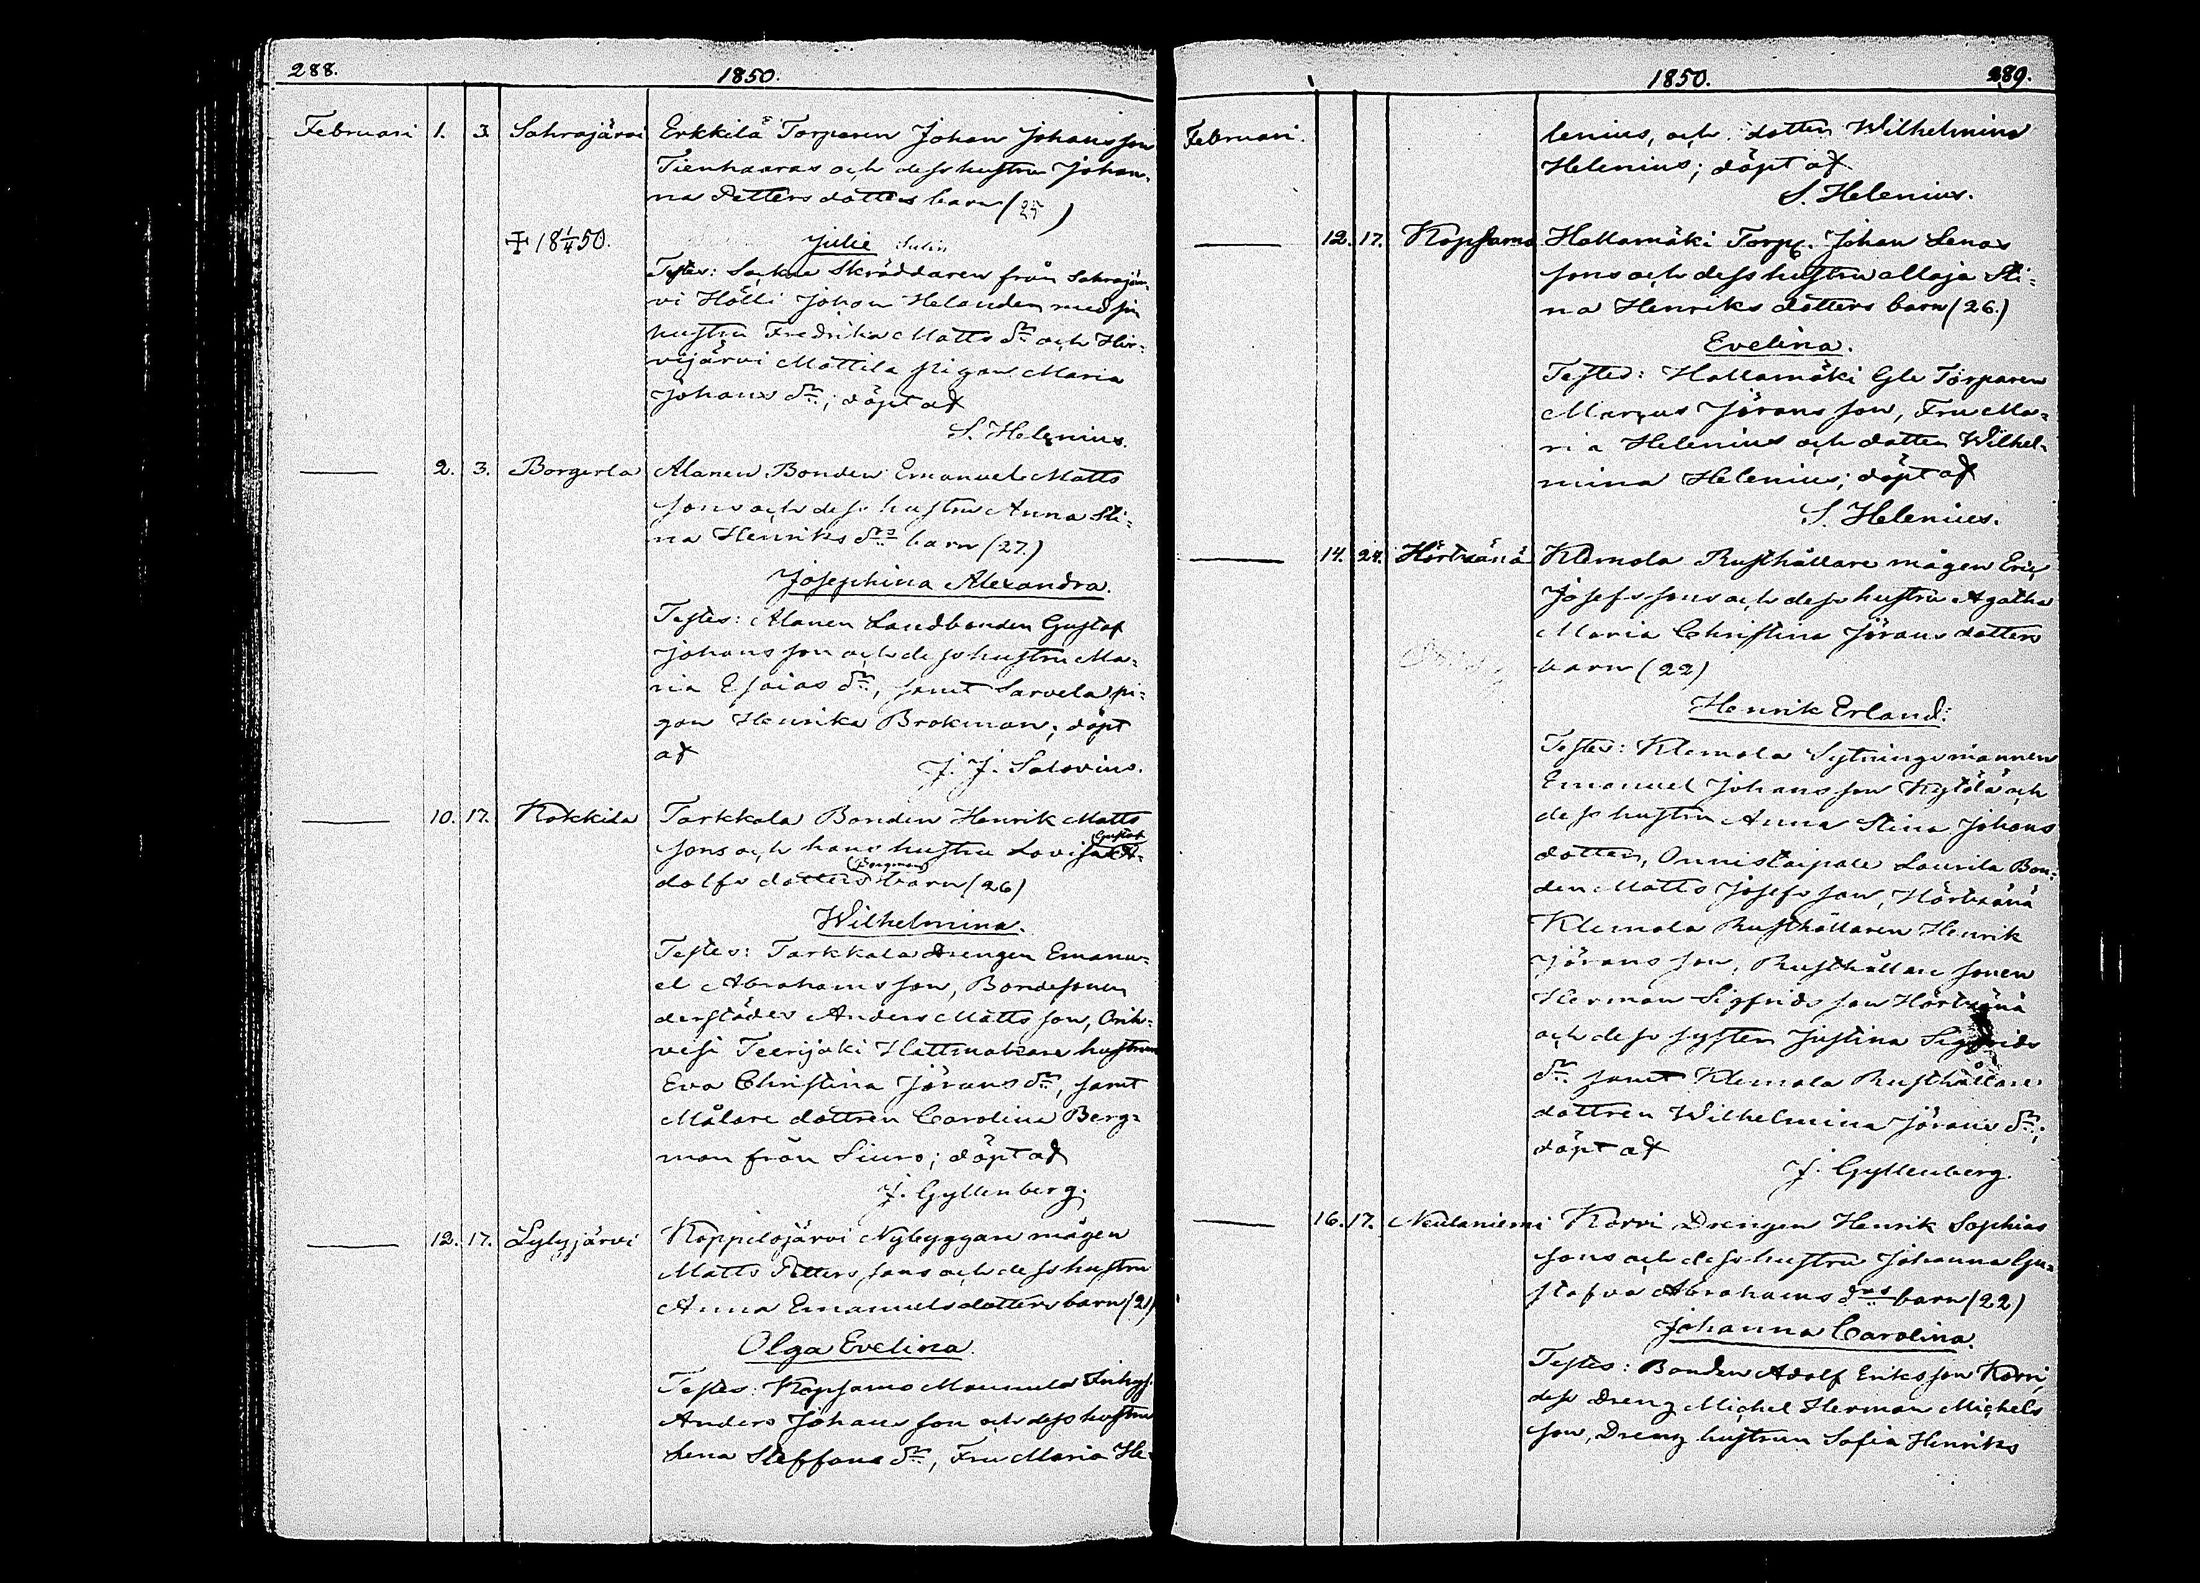 288.
1850.
Februari 1. 3. Sahrajärvi Erkkilä Torparen Johan Johansson
Tienhaaras och dess hustru Johan-
na Petters dotters barn (25)
☩ 18 1/4 50. Julie
Testes: Socken Skräddaren från Sahrajär-
vi Hölli Johan Helander med sin
hustru Fredrika Matts dr och Hir-
vijärvi Mattila pigan Maria
Johans dr; döpt af
S. Helenius.
—— 2. 3. Borgerla Alanen Bonden Emanuel Matts
sons och dess hustru Anna Sti-
na Henriks drs barn (27.)
Josephina Alexandra.
Testes: Alanen Landbonden Gustaf
Johansson och dess hustru Ma-
ria Esaias dr, samt Sarvela pi-
gan Henrika Brokman; döpt
af
J. J. Salovius.
—— 10. 17. Kokkila Tarkkala Bonden Henrik Matts
sons och hans hustru Lovisa Gustaf A-
dolfs dotters (Bergman) barn (26)
Wilhelmina.
Testes: Tarkkala Drengen Emanu-
el Abrahamsson, Bondesonen
derstädes Anders Matts son, Orih-
vesi Teerijoki Hattmakare hustrun
Eva Christina Jörans dr, samt
Målare dottren Carolina Berg-
man från Siuro; döpt af
J. Gyllenberg.
—— 12. 17. Lylyjärvi Koppelojärvi Nybyggare mågen
Matts Petters sons och dess hustru
Anna Emanuelsdotters barn (21)
Olga Evelina.
Testes: Kopsamo Maunula Inhys.
Anders Johansson och dess hustru
Lena Steffans dr, Fru Maria He-
1850.
289.
Februari. lenius, och dotter Wilhelmina
Helenius; döpt af
S. Helenius.
—— 12. 17. Kopsamo Hallamäki Torp. Johan Lenas
sons och dess hustru Maja Sti-
na Henriks dotters barn (26.)
Evelina.
Testes: Hallamäki Gle Torparen
Marcus Jöransson, Fru Ma-
ria Helenius och dotter Wilhel-
mina Helenius; döpt af
S. Helenius.
—— 14. 24. Hörtsänä Klemola Rusthållare mågen Eric
Josefs sons och dess hustru Agatha
Maria Christina Jörans dotters
barn (22)
Henrik Erland.
Testes: Klemola Sytningsmannen
Emanuel Johansson Kylölä och
dess hustru Anna Stina Johans
dotter, Onnistaipale Laurila Bon-
den Matts Josefsson, Hörtsänä
Klemola Rusthållaren Henrik
Jöransson, Rusthållare sonen
Herman Sigfridsson Hörtsänä
och dess syster Justina Sigfrids
dr samt Klemola Rusthållare
dottren Wilhelmina Jörans dr;
döpt af
J. Gyllenberg.
—— 16. 17. Neulaniemi Korvi Drengen Henrik Sophias
sons och dess hustru Johanna Gu-
stafva Abrahams drs barn (22)
Johanna Carolina.
Testes: Bonden Adolf Eriksson Korvi,
dess Dreng Michel Herman Michels
son, Dreng hustrun Sofia Henriks